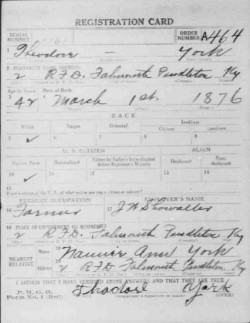 REGISTRATION CARD
SERIAL NUMBER ORDER NUMBER A464
1 Theodore York
2 PERMANENT HOME ADDRESS:
2 R.F.D. Falmouth Pendleton Ky
Age in Years Date of Birth
42 March 1st. 1876
RACE
White Negro Oriental Indian
✓
U. S. CITIZEN ALIEN
Native Born Naturalized Citizen by Father's Naturalization Before Registrant's Majority Declarant Non-declarant
✓
15 If not a citizen of the U. S., of what nation are you a citizen or subject?
PRESENT OCCUPATION EMPLOYER'S NAME
Farmer J W Showalter
18 PLACE OF EMPLOYMENT OR BUSINESS:
R.F.D. Falmouth Pendleton Ky
NEAREST RELATIVE Name Nannie Ann York
Address 2 R.F.D. Falmouth Pendleton Ky
I AFFIRM THAT I HAVE VERIFIED ABOVE ANSWERS AND THAT THEY ARE TRUE
P. M. G. O.
Form No. 1 (Red) Theodore York
(OVER)